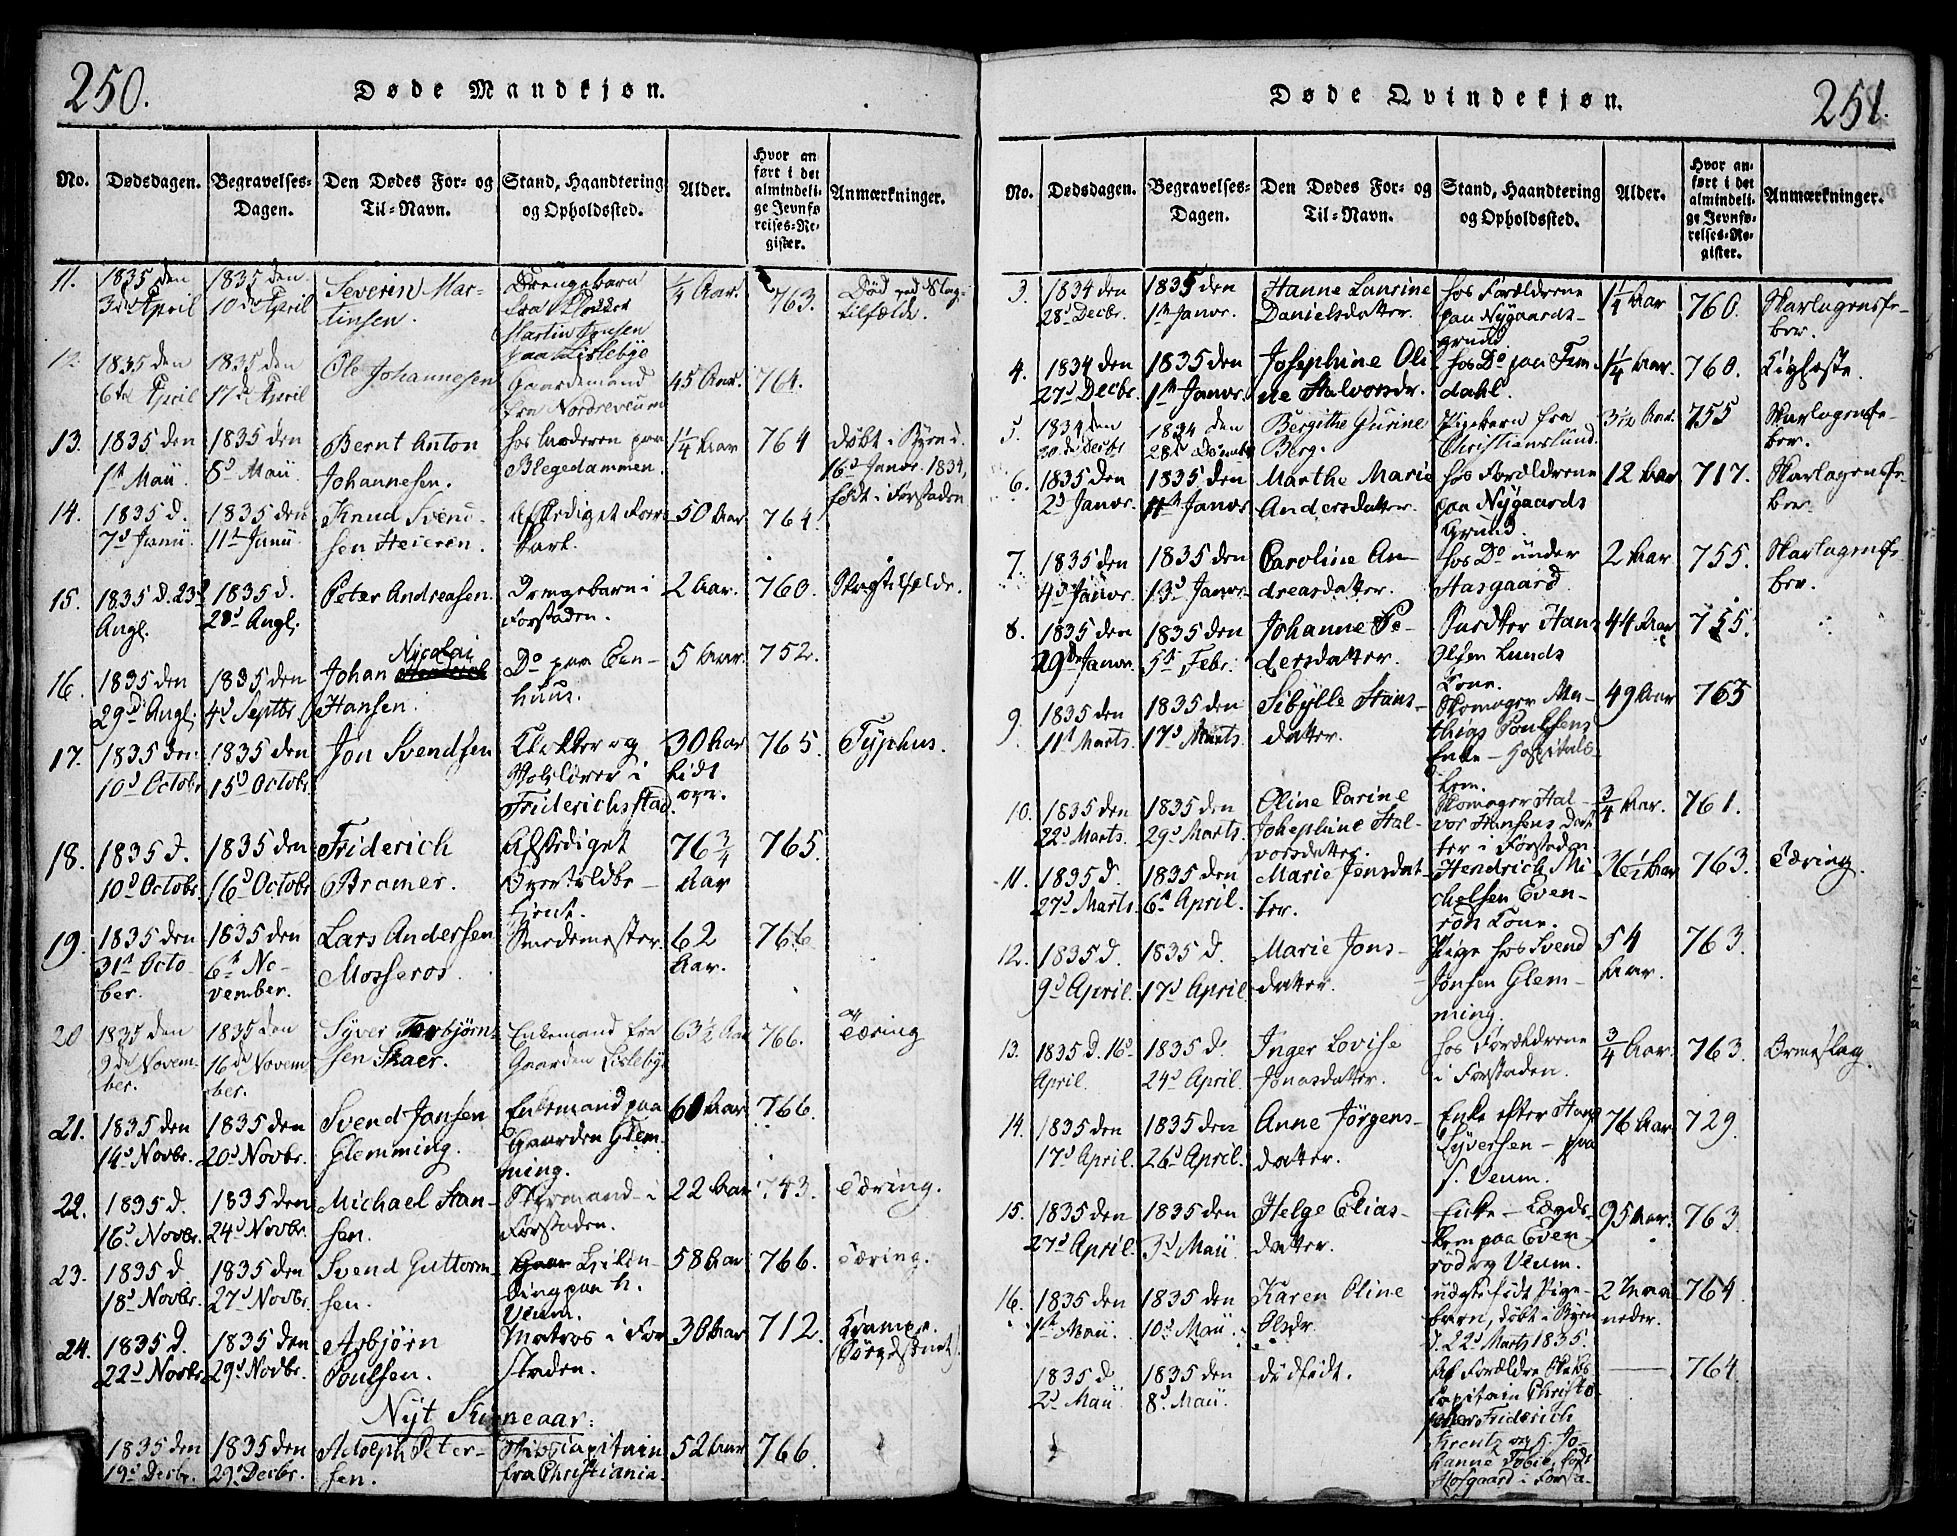 250.
Døde Mandkjøn.
No. Dødsdagen. Begravelses-Dagen. Den Dødes For- og Til-Navn. Stand, Haandtering og Opholdssted. Alder. Hvor anført i det almindelige Jevnførelses-Register. Anmærkninger.
11. 1835 den 3die April 1835 den 10de April Severin Martinsen. Drengebarn fra Klokker Martin Jensen paa Lislebye 1/4 Aar. 763. Død ved Slagtilfælde.
12. 1835 den 6te April 1835 den 17de April Ole Johannesen Gaardemand fra Nordreveum 45 Aar. 764.
13. 1835 den 1ste Maii. 1835 den 8d Maii. Bernt Anton Johannesen. hos Moderen paa Blegedammen. 1/4 Aar 764 døbt i Byen d. 16d Janvr. 1834, født i Forstaden
14. 1835 d. 7d Junii. 1835 den 11t Junii Knud Svendsen Heieren. Afskediget 50 Aar 764.
15. 1835 d. 23d Augl. 1835 d. 28d Augl. Peter Andreasen. Drengebarn i Forstaden. 2 Aar. 760. Slagtilfælde.
16. 1835 den 29d Augl. 1835 den 4d Septbr Johan Nicolai Hansen. Do paa Een-huus. 5 Aar. 752.
17. 1835 den 10d Octobr 1835 den 15d Octobr. Jon Svendsen Klokker og Skolelærer i Friderichsstad. 30 Aar lidt over. 765. Typhus.
18. 1835 d. 10d Octobr. 1835 den 16d Octobr Friderich Bramer. Afskediget Overtoldbetjent. 76 3/4 Aar 765.
19. 1835 den 31t October. 1835 den 6t November. Lars Andersen Mosseros. Snedemester. 62 Aar. 766
20 1835 den 9de November. 1835 den 16de November. Syver Torbjørnsen Skaer. Enkemand fra Gaarden Lislebye 63 1/2 Aar 766. af Tæring
21. 1835 den 14d Novbr. 1835 den 20d Novbr. Svend Jansen Glemming. Enkemand paa Gaarden Glemming. 60 Aar 766.
22. 1835 d. 16d Novbr. 1835 den 24d Novbr. Michael Hansen. Styrmand i Forstaden. 22 Aar 743. Tæring.
23. 1835 d 18d Novbr. 1835 den 27d Novbr. Svend Guttormsen. paa n. Veum. 58 Aar 766. Tæring.
24. 1835 d. 22d Novbr. 1835 den 29d Novbr. Asbjörn Poulsen. Matros i Forstaden. 30 Aar 712. Krampe.
Nyt Kirkeaar:
1835 den 19d Decbr. 1835 den 29d Decbr. Adolph Petersen. Skibscapitain fra Christiania. 52 Aar 766.
Døde Qvindekjøn.
251.
No. Dødsdagen. Begravelses-Dagen. Den Dødes For- og Til-Navn. Stand, Haandtering og Opholdssted. Alder. Hvor anført i det almindelige Jevnførelses-Register. Anmærkninger.
3. 1834 den 28d Decbr. 1835 den 1ste Janvr. Hanne Laurine Danielsdatter. hos Forældrene paa Nygaards-grund. 1 1/4 Aar 760. Skarlagensfeber.
4. 1834 den 27d Decbr. 1835 den 1ste Janvr. Josephine Oline Halvorsdr. hos Do paa Fundahl. 1 1/4 Aar. 760. Kighoste.
5. 1834 den 20de Decbr 1834 den 28d Decembr Bergithe Gurine Berg. Pigebarn fra Christianslund. 3 1/2 Aar. 755 Skarlagensfeber.
6. 1835 den 2d Janvr. 1835 den 11te Janvr Marthe Marie Andersdatter. hos Forældrene paa Nygaards Grund. 12 Aar 717. Skarlagensfeber.
7. 1835 den 4d Janvr. 1835 den 13d Janvr. Caroline Andreasdatter. hos Do under Aasgaard. 2 Aar 755. Skarlagensfeber.
8. 1835 den 29de Janvr. 1835 den 5t Febr. Johanne Pedersdatter. Hans Olsen Lunds Kone. 44 Aar 755.
9. 1835 den 11t Marts. 1835 den 17d Marts. Sibylle Hansdatter. Skomager Mathias Poulsens Enke - Hospitalslem. 49 Aar 765
10. 1835 den 22d Marts. 1835 den 29d Marts. Oline Carine Josephine Halvorsdatter. Skomager Halvor Hansens Datter i Forstaden 3/4 Aar. 761.
11. 1835 d. 27d Marts. 1835 den 6t April. Marie Jensdatter. Hendrich Michelsen Evenröd Kone. 36 1/2 Aar 763. Tæring.
12. 1835 d. 9d April. 1835 d. 17d April. Marie Jonsdatter. Pige hos Svend Jonsen Glemming. 54 Aar. 763.
13. 1835 d. 16d April. 1835 d. 24d April. Inger Lovise Jonasdatter. hos Forældrene i Forstaden. 3/4 Aar. 763. Ormeslag.
14. 1835 den 17d April. 1835 den 26d April. Anne Jörgensdatter. Enke efter Hans Syversen - paa s. Veum. 76 Aar 729.
15. 1835 den 27d April. 1835 den 3d Maii. Helge Eliasdatter. Enke - Lægdslem paa Evenröd og Veum. 95 Aar. 763.
16. 1835 den 1ste Maii. 1835 den 10d Maii. Karen Oline Olsdr. uægtefødt Pigebarn, døbt i Byen d. 22d Marts 1835. 2 Maaneder. 764.
1835 d. 2d Maii 1835 den 8d Maii. dødfødt. Af Forældre Skibscapitain Christopher Friderich Krentz og H. Johanne Tobie, født Hofgaard i Forsta- 764.